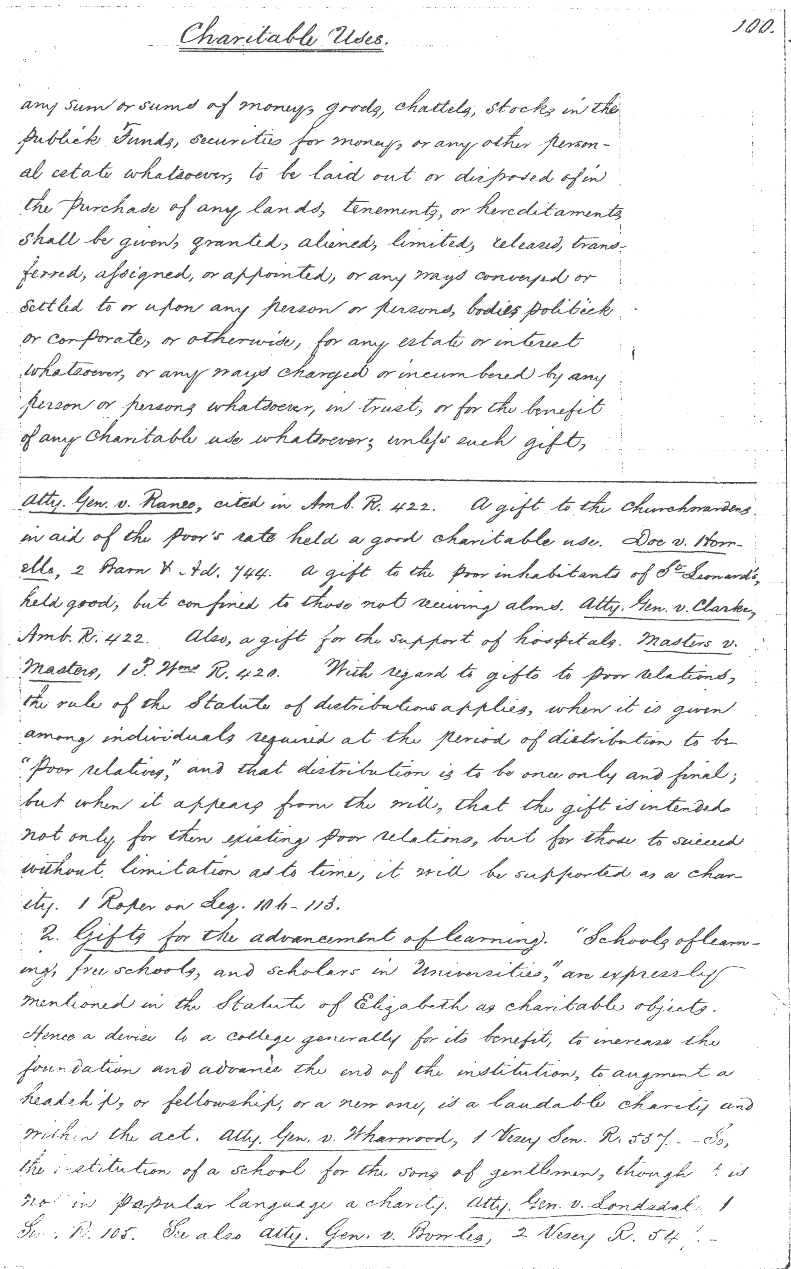 Charitable Uses.
100.
any sum or sums of money, goods, chattels, stocks in the
publick Funds, securities for money, or any other person-
al estate whatsoever, to be laid out or disposed of in
the purchase of any lands, tenements, or hereditaments
shall be given, granted, aliened, limited, released, trans-
ferred, assigned, or appointed, or any ways conveyed or
settled to or upon any person or persons, bodies politick
or corporate, or otherwise, for any estate or interest
whatsoever, or any ways charged or incumbered by any
person or persons whatsoever, in trust, or for the benefit
of any charitable use whatsoever; unless such gift,
Atty. Gen. v. Rance, cited in Amb. R. 422. A gift to the churchwardens
in aid of the poor's rate held a good charitable use. Doe v. How-
ells, 2 Barn & Ad. 744. A gift to the poor inhabitants of St Leonard's,
held good, but confined to those not receiving alms. Atty. Gen. v. Clarke,
Amb. R. 422. Also, a gift for the support of hospitals. Masters v.
Masters, 1 P. Wms R. 420. With regard to gifts to poor relations,
the rule of the Statute of distributions applies, when it is given
among individuals required at the period of distribution to be
"poor relatives," and that distribution is to be once only and final;
but when it appears from the will, that the gift is intended
not only for then existing poor relations, but for those to succeed
without limitation as to time, it will be supported as a char-
ity. 1 Roper on Leg. 106-113.
2. Gifts for the advancement of learning. "Schools of learn-
ing, free schools, and scholars in Universities," are expressly
mentioned in the Statute of Elizabeth as charitable objects.
Hence a devise to a college generally for its benefit, to increase the
foundation and advance the end of the institution, to augment a
headship, or fellowship, or a new one, is a laudable charity and
within the act. Atty. Gen. v. Wharwood, 1 Vesey Sen. R. 537. - So,
the institution of a school for the sons of gentlemen, though it is
not in popular language a charity. Atty. Gen. v. Lonsdal 1
Sim. R. 105. See also Atty. Gen. v. Bowles, 2 Vesey R. 54